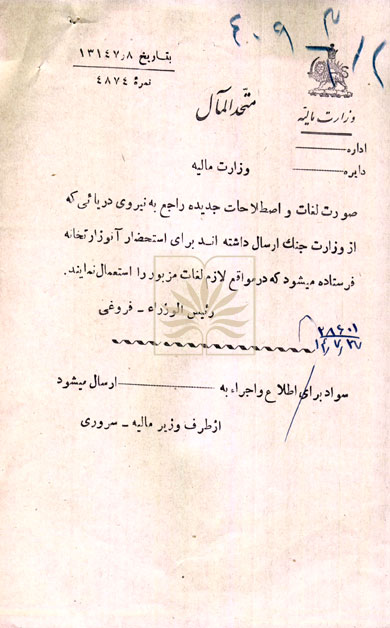 ۴۰۹۳
بتاریخ ۱۳۱۴٫۷٫۸
نمرهٔ ۴۸۷۴
متحدالمآل
وزارت مالیّه
اداره
دایره
وزارت مالیه
صورت لغات و اصطلاحات جدیده راجع به نیروی دریائی که
از وزارت جنك ارسال داشته اند برای استحضار آنوزارتخانه
فرستاده میشود که در مواقع لازمه لغات مزبور را استعمال نمایند.
رئیس الوزراء ـ فروغی
۲۸۶۰۱
۱۴٫۷٫۲۷
سواد برای اطلاع و اجراء به ارسال میشود
از طرف وزیر مالیه ـ سروری